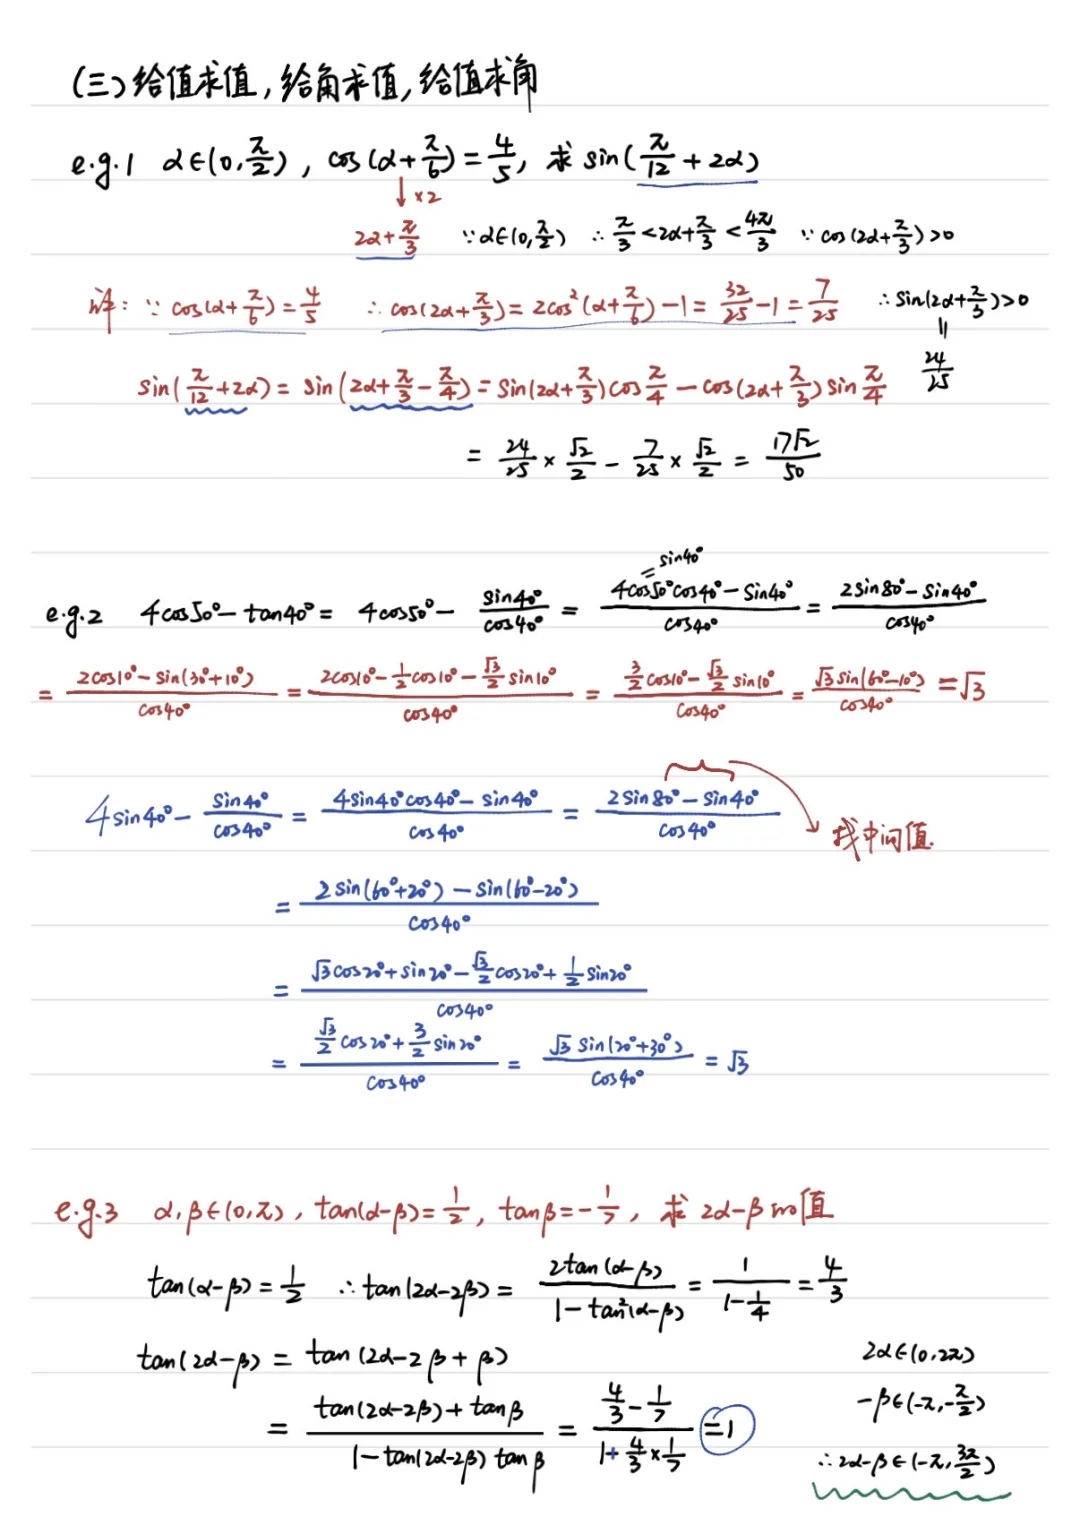 (三)给值求值,给角求值,给值求角
e.g.1 α∈(0,π/2), cos(α+π/6)=4/5, 求 sin(π/12+2α)
↓×2
2α+π/3 ∵α∈(0,π/2) ∴π/3<2α+π/3<4π/3 ∵cos(2α+π/3)>0
译: ∵cos(α+π/6)=4/5 ∴cos(2α+π/3)=2cos²(α+π/6)-1=32/25-1=7/25 ∴sin(2α+π/3)>0
=24/25
sin(π/12+2α)=sin(2α+π/3-π/4)=sin(2α+π/3)cosπ/4-cos(2α+π/3)sinπ/4
=24/25×√2/2-7/25×√2/2=17√2/50
=sin40°
e.g.2 4cos50°-tan40°=4cos50°-sin40°/cos40°=(4cos50°cos40°-sin40°)/cos40°=(2sin80°-sin40°)/cos40°
=(2cos10°-sin(30°+10°))/cos40°=(2cos10°-1/2cos10°-√3/2sin10°)/cos40°=(3/2cos10°-√3/2sin10°)/cos40°=√3sin(60°-10°)/cos40°=√3
4sin40°-sin40°/cos40°=(4sin40°cos40°-sin40°)/cos40°=(2sin80°-sin40°)/cos40°
找中间值.
=(2sin(60°+20°)-sin(60°-20°))/cos40°
=(√3cos20°+sin20°-√3/2cos20°+1/2sin20°)/cos40°
=(√3/2cos20°+3/2sin20°)/cos40°=√3sin(20°+30°)/cos40°=√3
e.g.3 α,β∈(0,π), tan(α-β)=1/2, tanβ=-1/7, 求 2α-β的值
tan(α-β)=1/2 ∴tan(2α-2β)=2tan(α-β)/(1-tan²(α-β))=1/(1-1/4)=4/3
tan(2α-β)=tan(2α-2β+β)
=(tan(2α-2β)+tanβ)/(1-tan(2α-2β)tanβ)=(4/3-1/7)/(1+4/3×1/7)=1
2α∈(0,2π)
-β∈(-π,-π/2)
∴2α-β∈(-π,3π/2)